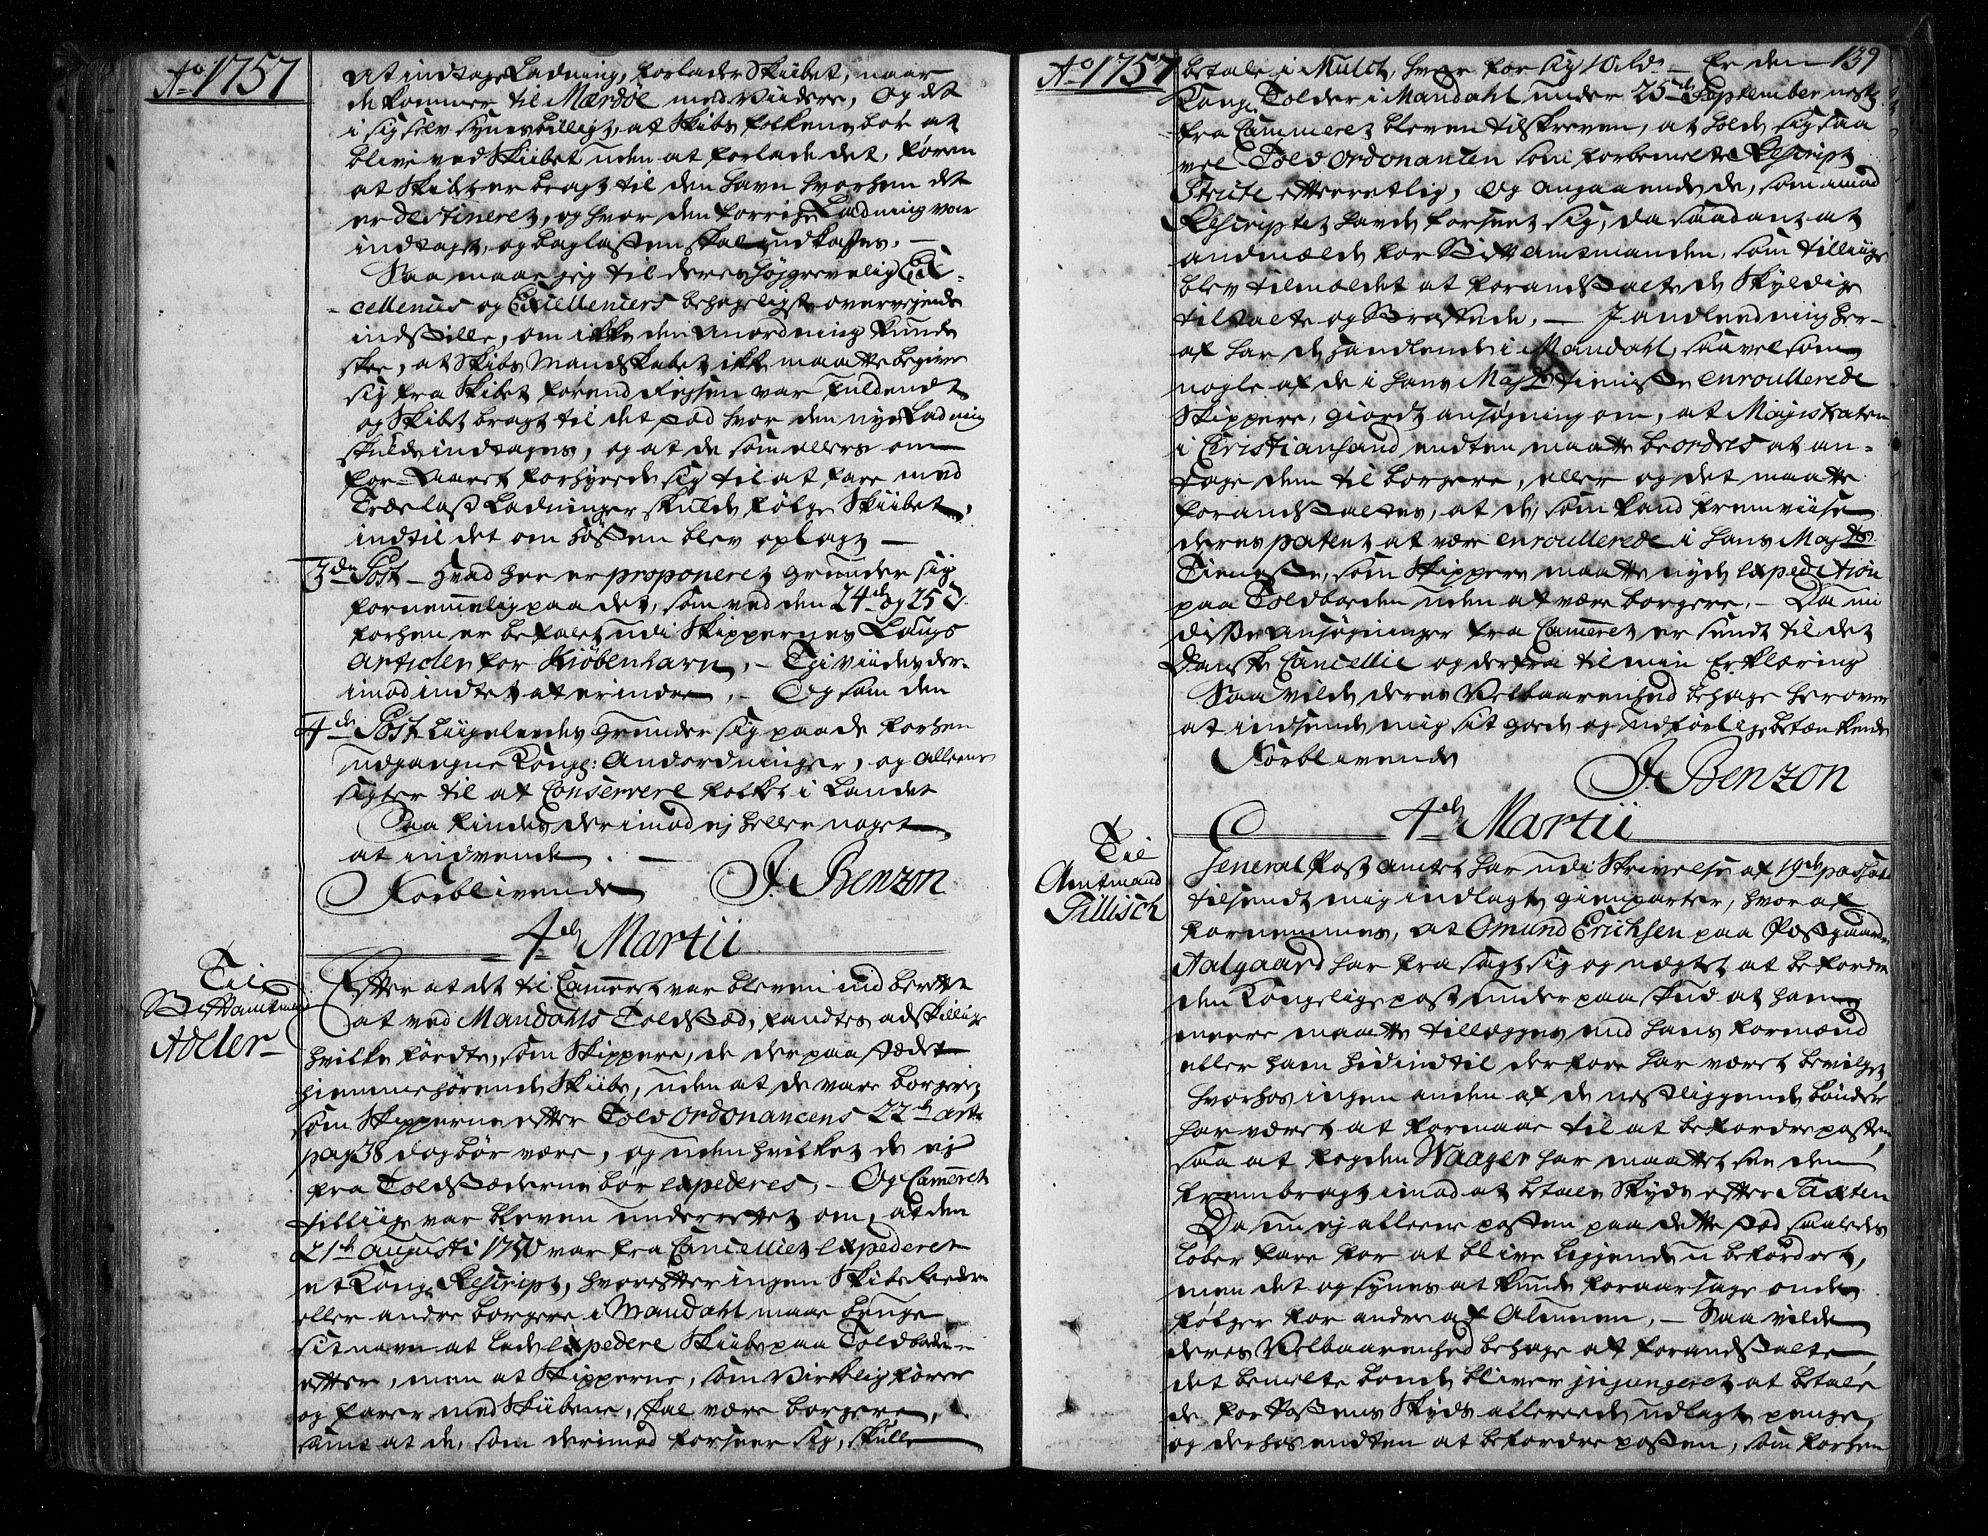 Ao 1757
at indtage Ladning, forlader Skibet, naar
de kommer til Mærdøe med Viidere, Og det
i sig selv synes billigt, at Skibs folkene bør at
blive ved Skibet uden at forlade det, førend
at Skibet er bragt til den havn hvorhen det
er destineret, og hvor den forrige Ladning var
indtagt, og baglasten skal udkastes. —
Saa maae jeg til deres Højgrevelig Ex-
cellences og Excellencers behageligste overvejende
indstille, om ikke den Anordning kunde
skee, at Skibs Mandskabet ikke maatte begive
sig fra Skibet førend Rejsen var fuldendt
og Skibet bragt til det stæd hvor den nye Ladning
skulde indtages, og at de som ellers om
for-Aaret forhyrede sig til at fare med
Trælast Ladninger skulde følge Skibet,
indtil det om Høsten blev oplagt —
3de Post — Hvad her er proponeret grunder sig
fornemmelig paa det, som ved den 24de og 25 §
forhen er befalet udi Skippernes Laugs
Articler for Kiøbenhavn, — Thi viides der-
imod indtet at erindre, — Og som den
4de Post liigeledes grunder sig paa de forhen
udgangne Kongl: Anordninger, og alleene
sigter til at Conservere folket i Landet
Saa findes derimod ej heller noget
at indvende. —
Forblivende J. Benzon
4de Martii
Til
Stiftamtmand
Adeler
Efter at det til Cammeret var bleven indberettet
at ved Mandahls Toldstæd, fandtes adskillige
hvilke førdte, som Skippere, de der paa stædet
hiemmehørende Skibe, uden at de vare borgere,
som Skipperne efter Told Ordonancens 22de art:
pag 38 dog bør være, og uden hvilket de ej
fra Toldstæderne bør expederes, — Og Cammeret
tilliige var bleven underrettet om, at den
21de Augusti 1750 var fra Cancelliet expederet
et Kongl. Rescript, hvorefter ingen Skibs Reedere
eller andre borgere i Mandahl maae bruge
sit navn at lade expedere Skibe paa Toldboden
efter, men at Skipperne, som Virkelig fører
og farer med Skibene, skal være borgere,
samt at de, som derimod forseer sig, skulle
Ao 1757
139
betale i Mulct, hver for sig 10 rdr — Er den
Kongl. Tolder i Mandahl under 25de September nest
fra Cammeret bleven tilskreven, at holde sig saa
vel Told Ordonancen som forbemelte Rescript
stricte efterretlig, Og angaaende de, som imod
Rescriptet havde forseet sig, da saadant at
andmælde for Stiftamtmanden, som tilliige
blev tilmeldet at foranstalte de Skyldige
tiltalte og straffede, — I andledning her-
af har de handlende i Mandahl, saavel som
nogle af de i hans Mayts tieniste enroullerede
Skippere, giordt ansøgning om, at Magistraten
i Christiansand endten maatte beordres at an-
tage dem til borgere, eller og det maatte
foranstaltes, at de, som kand fremviise
deres patent at være enroullerede i hans Mayts
Tieneste, som Skippere maatte nyde expedition
paa Toldboeden uden at være borgere. — Da nu
disse ansøgninger fra Cammeret er sendt til det
Danske Cancellie og derfra til min Erklæring
Saa vilde deres Velbaarenhed behage herover
at indsende mig sit gode og udførlige betænkende
Forblivende
J. Benzon
4de Martii
Til
Amtmand
Tillisch
General Post Amtet har udi Skrivelse af 19de passato
tilsendt mig indlagte gienparter, hvoraf
fornemmes, at Omund Erichsen paa Postgaarden
Aalgaard har fra sagt sig og nægtet at befordre
den Kongelige post under paaskud at ham
meere maatte tillægges end hans formænd
eller ham hidindtil derfore har været bevilget,
hvorhos ingen anden af de nestliggende bønder
har været at formaae til at befordre posten,
saa at fogden Waager har maattet see den
frembragt imod at betale Skyds efter Taxten
Da nu ej alleene posten paa dette stæd saaledes
løber fare for at blive liggende ubefordret,
men det og synes at kunde foraarsage onde
følger for andre af Almuen, — Saa vilde
deres Velbaarenhed behage at foranstalte
det bemelte bonde bliver injungeret at betale
de for Postens Skyds allereede udlagte penge,
og derhos endten at befordre posten, som forhen